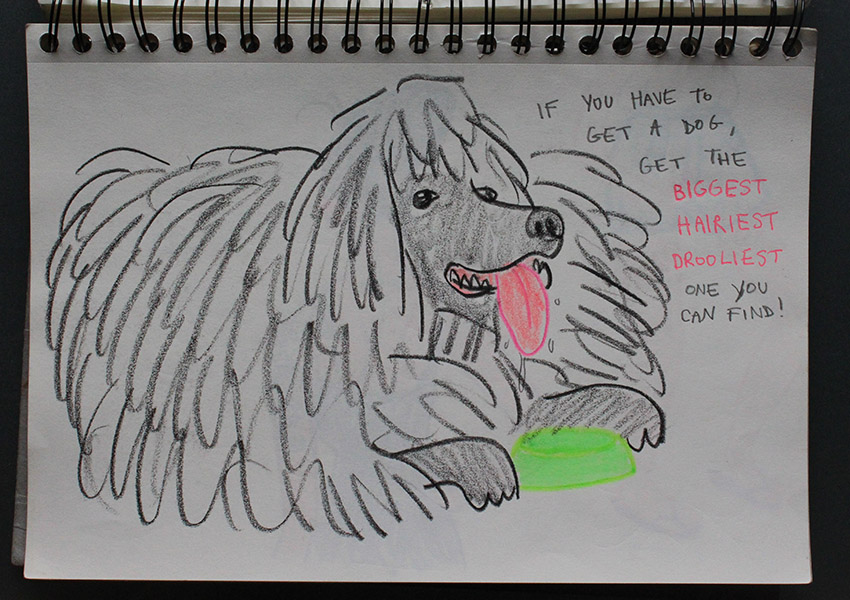 IF YOU HAVE TO
GET A DOG,
GET THE
BIGGEST
HAIRIEST
DROOLIEST
ONE YOU
CAN FIND!